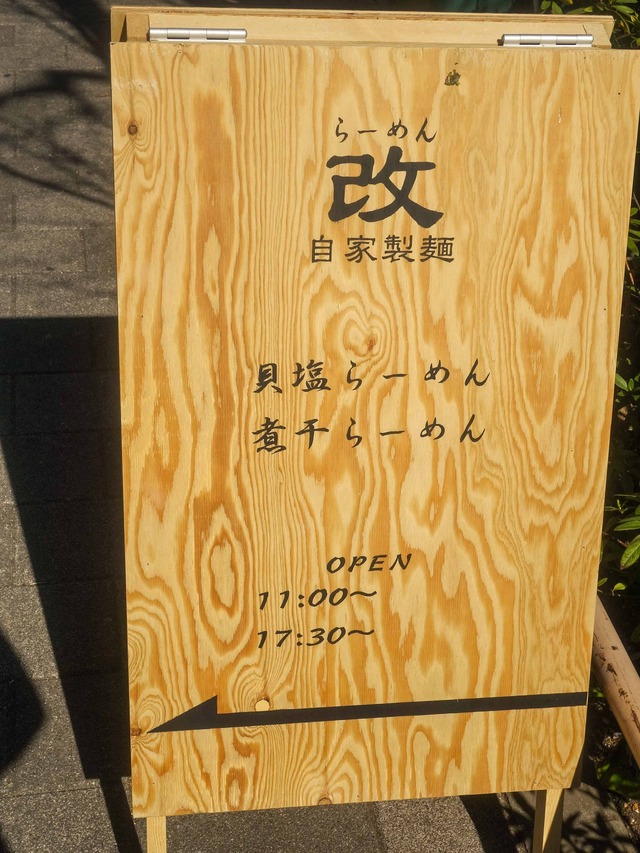 らーめん
改
自家製麺
貝塩らーめん
煮干らーめん
OPEN
11:00〜
17:30〜